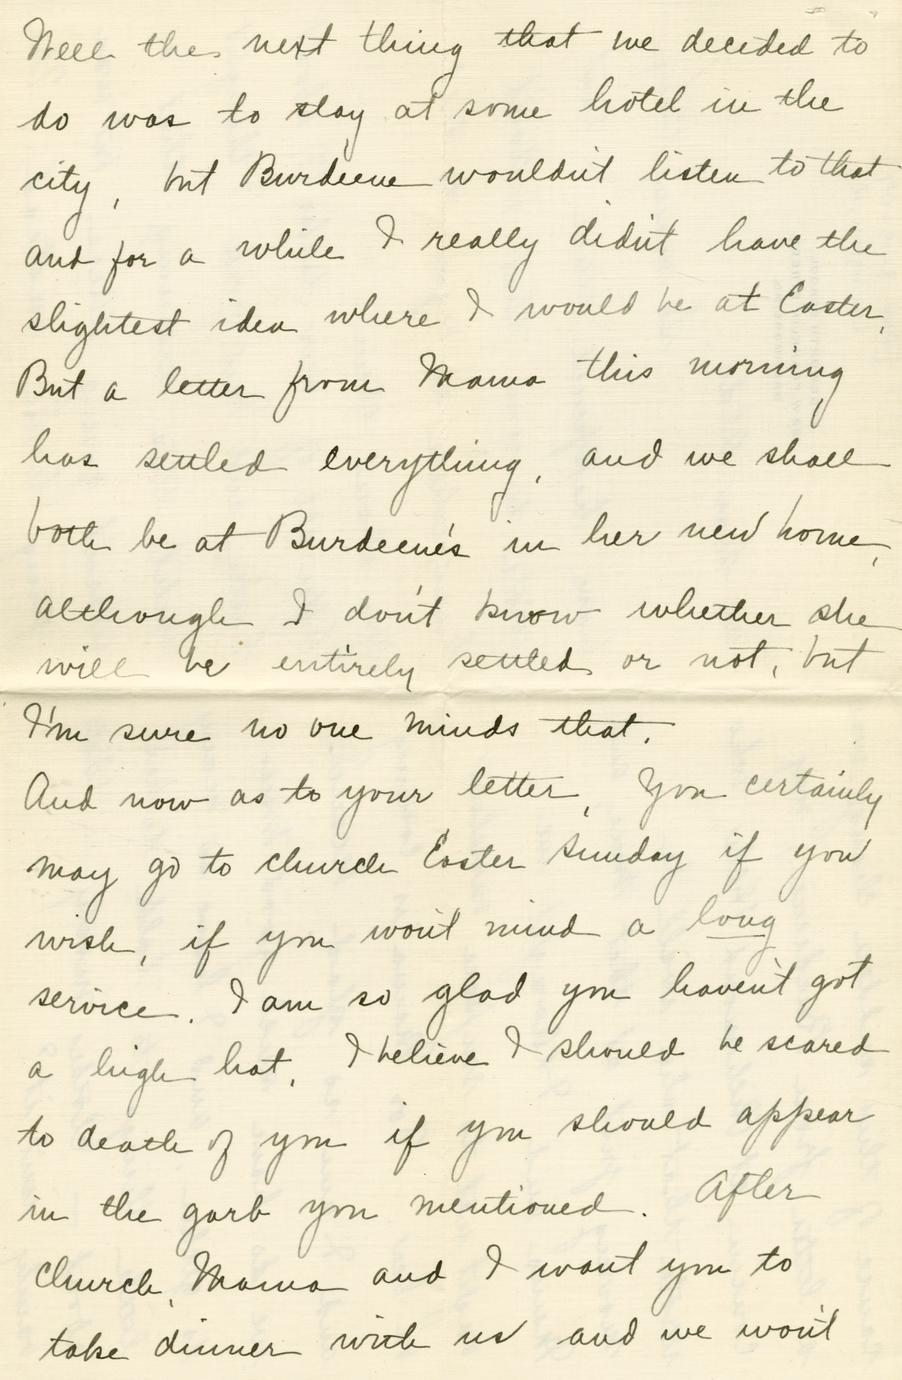 Well the next thing that we decided to
do was to stay at some hotel in the
city, but Burdeene wouldn't listen to that
and for a while I really didn't have the
slightest idea where I would be at Easter.
But a letter from Mama this morning
has settled everything, and we shall
both be at Burdeene's in her new home,
although I don't know whether she
will be entirely settled or not, but
I'm sure no one minds that.
And now as to your letter, You certainly
may go to church Easter Sunday if you
wish, if you won't mind a long
service. I am so glad you haven't got
a high hat, I believe I should be scared
to death of you if you should appear
in the garb you mentioned. After
church, Mama and I want you to
take dinner with us and we won't